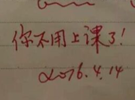 你不用上课了!
2016.4.14